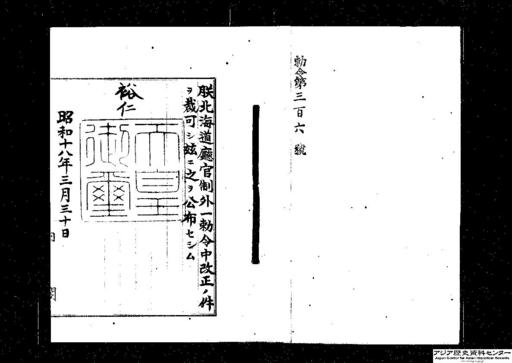 勅令第三百六號
朕北海道廳官制外一勅令中改正ノ件
ヲ裁可シ玆ニ之ヲ公布セシム
裕仁
天皇御璽
昭和十八年三月三十日
アジア歴史資料センター
Japan Center for Asian Historical Records